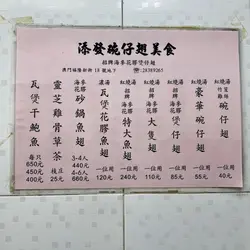 添發碗仔翅美食
招牌海參花膠煲仔翅
澳門福隆新街 18 號地下 ☎:28389265
紅燒湯
竹笙雞
碗仔翅
一位用
40元
紅燒湯
豪華碗仔翅
一位用
55元
紅燒湯
招牌
大碗翅
一位用
85元
紅燒湯
招牌
大隻翅
一位用
110元
濃湯
海參花膠
特大鮑翅
一位用
240元
濃湯
瓦煲花膠魚翅
一位用
120元
海參花膠
砂鍋魚翅
3-4人
440元
4-6人
660元
靈芝雞骨草茶
枝庄
25元
瓦煲干鮑魚
每只
650元
450元
400元